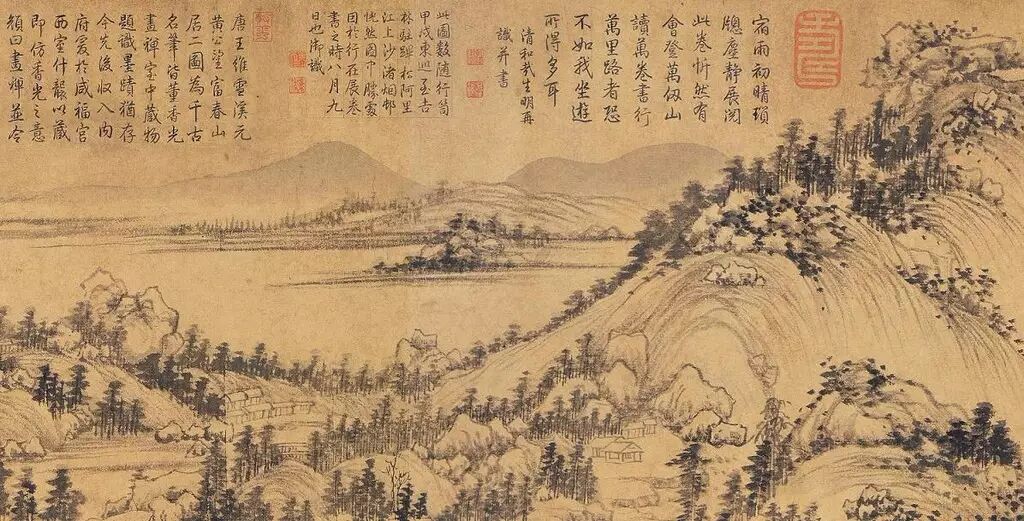 宿雨初晴瑣
牕塵靜展閱
此卷忻然有
會登萬仭山
讀萬卷書行
萬里路者恐
不如我坐遊
所得多耳
清和哉生明再
識并書
此圖數隨行笥
甲戌東巡至吉
林駐蹕松阿里
江上沙渚烟邨
怳然圖中勝處
因於行在展卷
書之時八月九
日也御識
唐王維雪溪元
黃公望富春山
居二圖為千古
名筆皆董香光
畫禪室中藏物
題識墨蹟猶存
今先後收入內
府爰於咸福宮
西室什襲以藏
即仿香光之意
顏曰畫禪並令